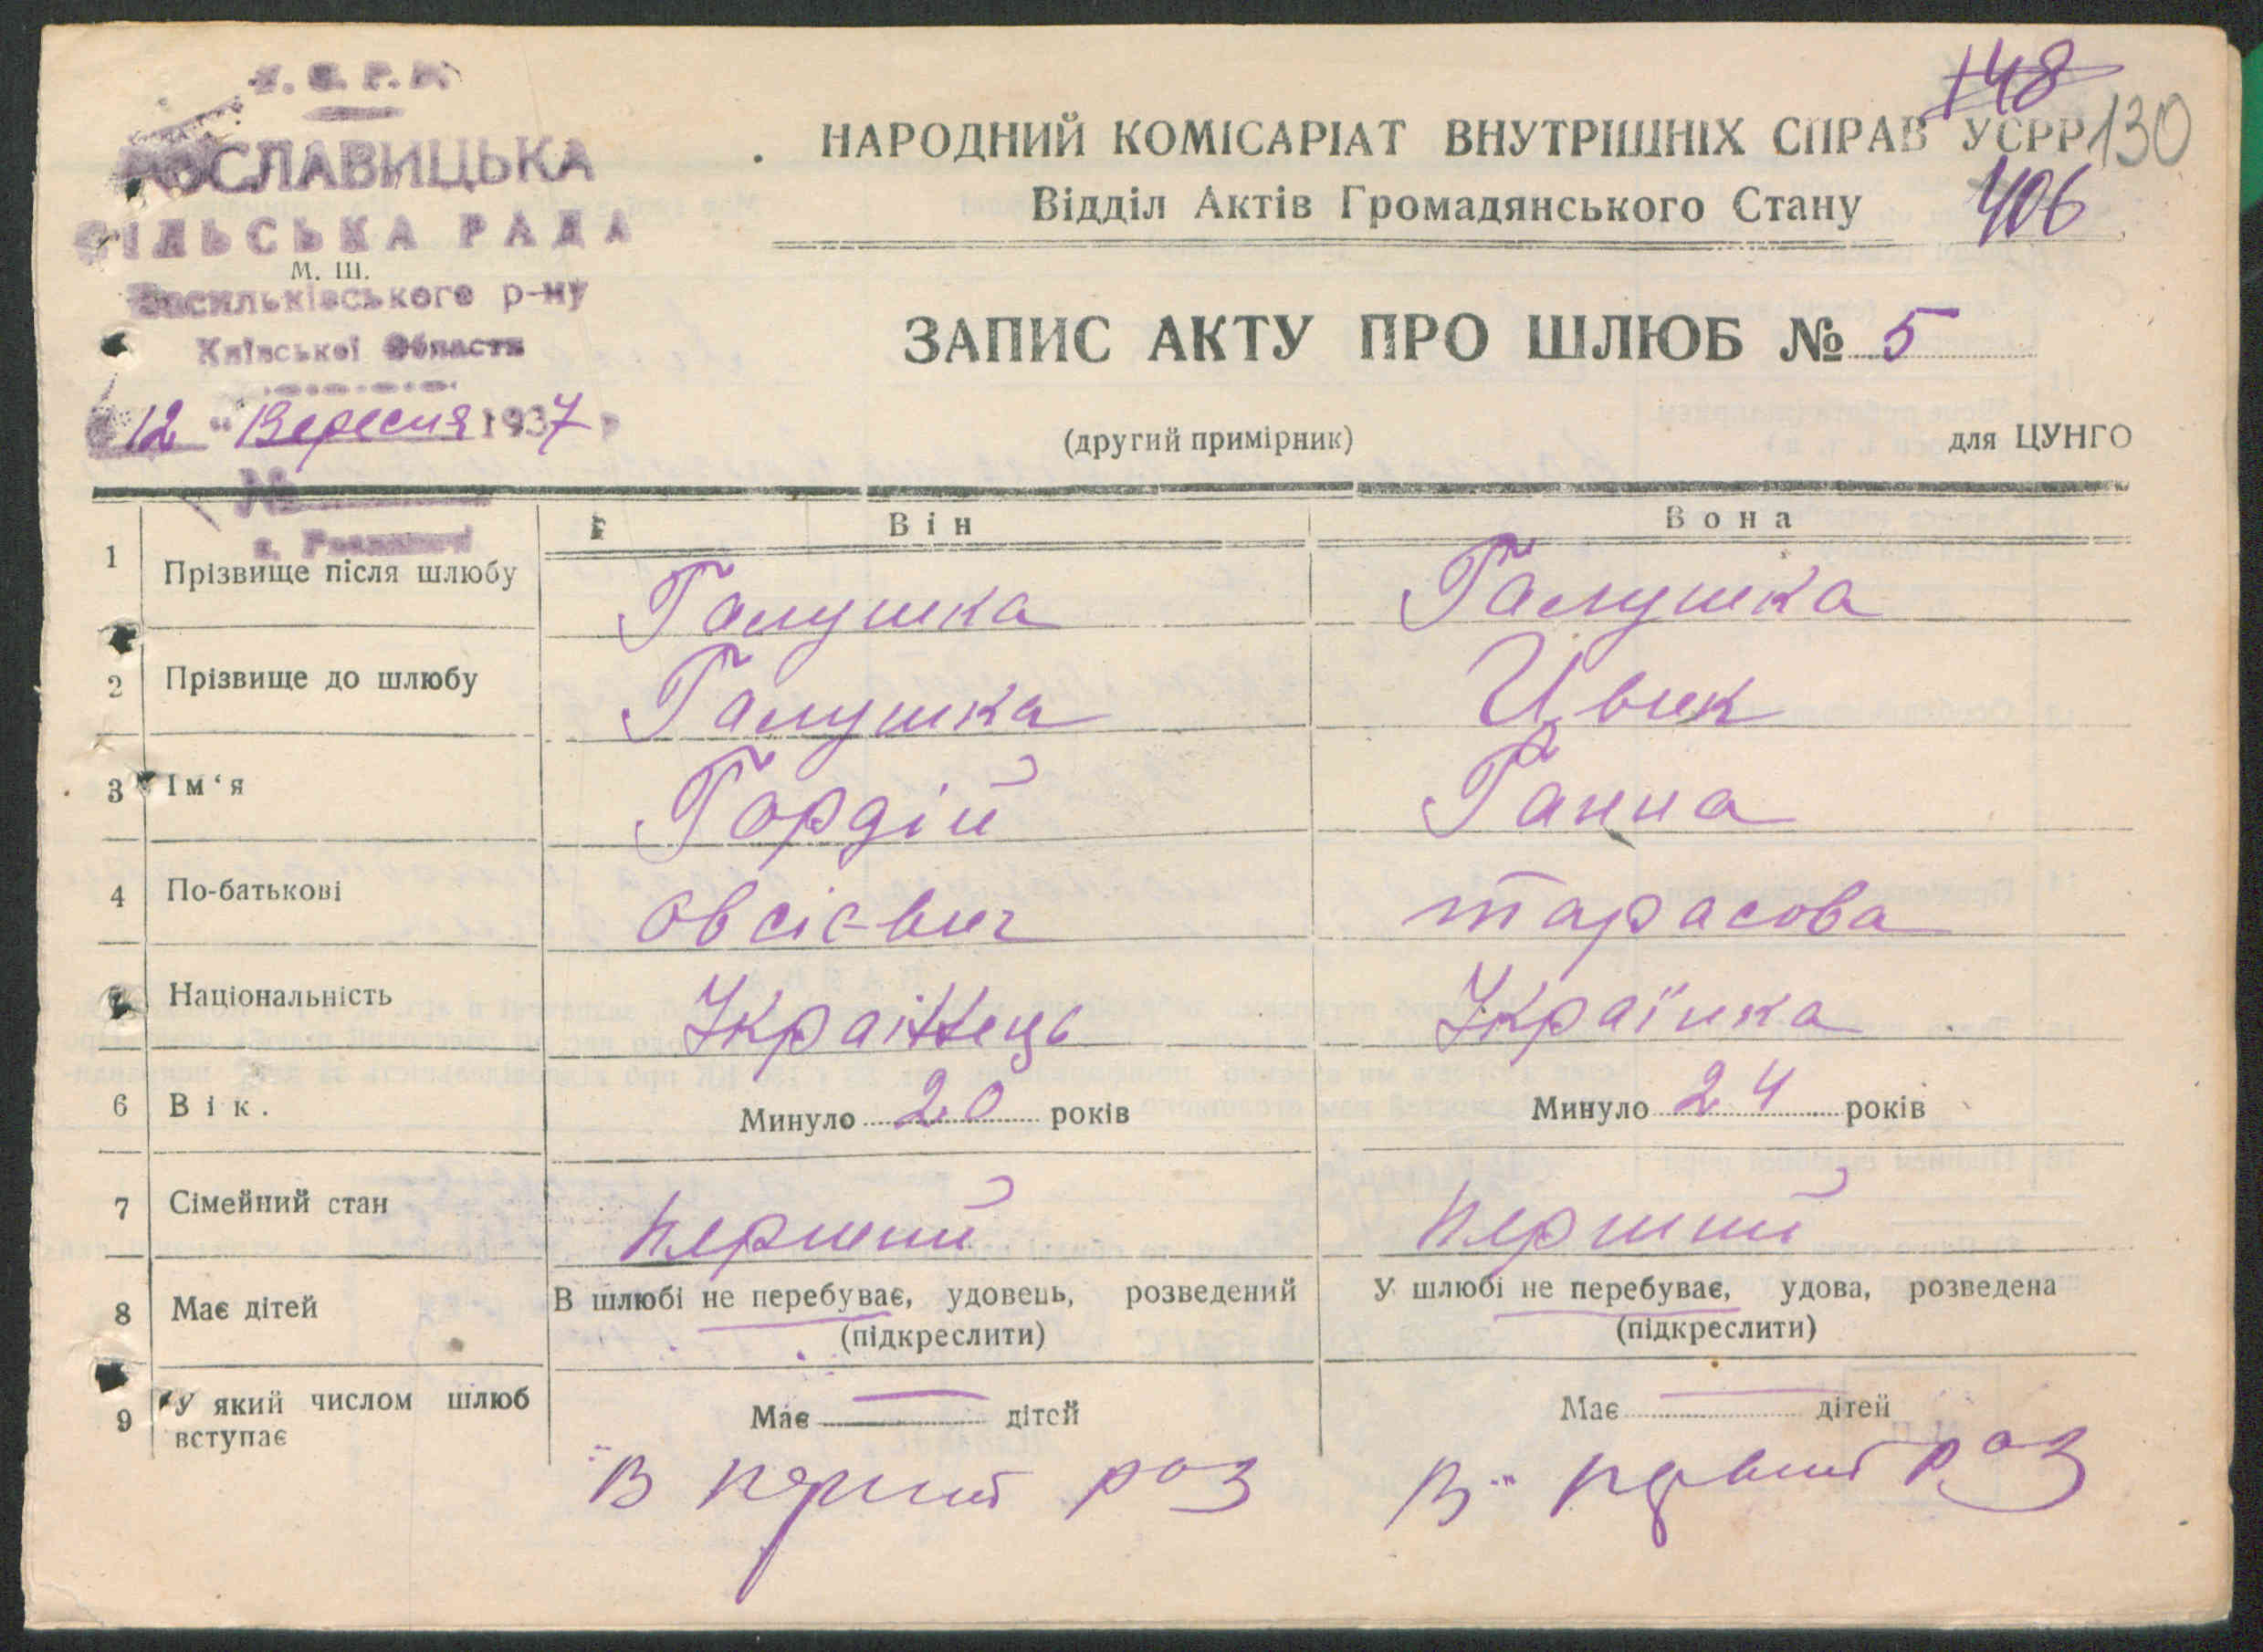 У. С. Р. Р.
РОСЛАВИЦЬКА
СІЛЬСЬКА РАДА
М. Ш.
Васильківського р-ну
Київської Области
"12" Вересня 1937
№
с. Рославичі
148
НАРОДНИЙ КОМІСАРІАТ ВНУТРІШНІХ СПРАВ УСРР 130
Відділ Актів Громадянського Стану 406
ЗАПИС АКТУ ПРО ШЛЮБ № 5
(другий примірник) для ЦУНГО
Він Вона
1 Прізвище після шлюбу Галушка Галушка
2 Прізвище до шлюбу Галушка Цвик
3 Ім‘я Гордій Ганна
4 По-батькові Овсієвич Тарасова
Національність Українець Українка
6 Вік. Минуло 20 років Минуло 24 років
7 Сімейний стан перший перший
8 Має дітей В шлюбі не перебуває, удовець, розведений У шлюбі не перебуває, удова, розведена
(підкреслити) (підкреслити)
9 У який числом шлюб Має — дітей Має — дітей
вступає
В перший раз В первий раз